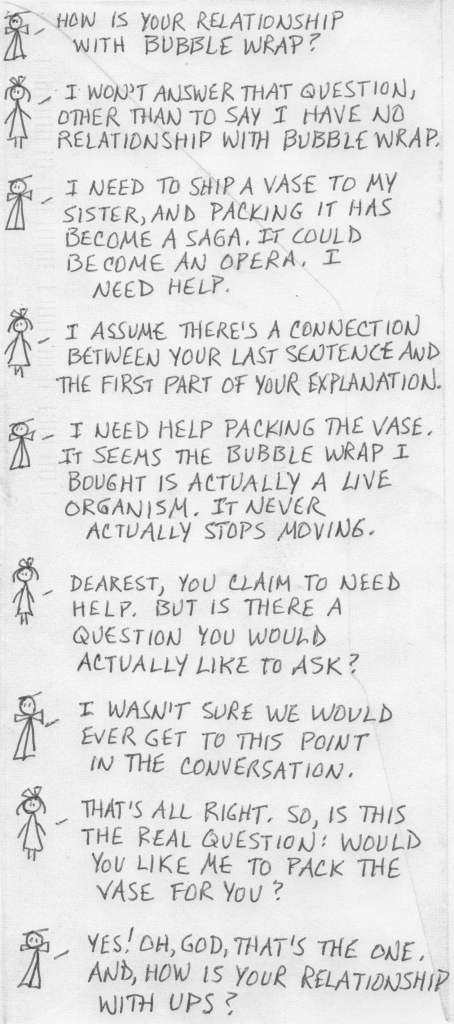 HOW IS YOUR RELATIONSHIP
WITH BUBBLE WRAP?
I WON'T ANSWER THAT QUESTION,
OTHER THAN TO SAY I HAVE NO
RELATIONSHIP WITH BUBBLE WRAP.
I NEED TO SHIP A VASE TO MY
SISTER, AND PACKING IT HAS
BECOME A SAGA. IT COULD
BECOME AN OPERA. I
NEED HELP.
I ASSUME THERE'S A CONNECTION
BETWEEN YOUR LAST SENTENCE AND
THE FIRST PART OF YOUR EXPLANATION.
I NEED HELP PACKING THE VASE.
IT SEEMS THE BUBBLE WRAP I
BOUGHT IS ACTUALLY A LIVE
ORGANISM. IT NEVER
ACTUALLY STOPS MOVING.
DEAREST, YOU CLAIM TO NEED
HELP. BUT IS THERE A
QUESTION YOU WOULD
ACTUALLY LIKE TO ASK?
I WASN'T SURE WE WOULD
EVER GET TO THIS POINT
IN THE CONVERSATION.
THAT'S ALL RIGHT. SO, IS THIS
THE REAL QUESTION: WOULD
YOU LIKE ME TO PACK THE
VASE FOR YOU?
YES! OH, GOD, THAT'S THE ONE.
AND, HOW IS YOUR RELATIONSHIP
WITH UPS?